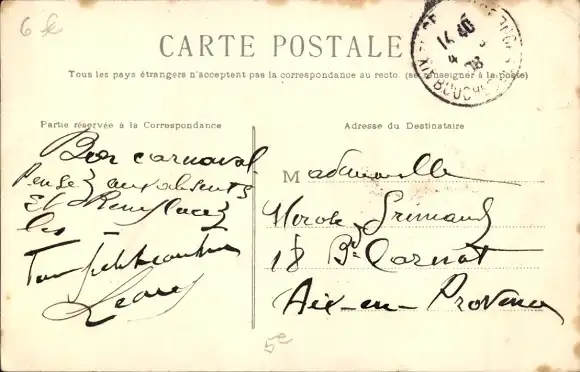 6 f
CARTE POSTALE
Tous les pays étrangers n'acceptent pas la correspondance au recto. (se renseigner à la poste)
Partie réservée à la Correspondance
Bon carnaval
Pensez aux absents
Et Remplacez
les
Ton petit
Adresse du Destinataire
Mademoiselle
Grimaud
18 Bd Carnot
Aix-en-Provence
5e